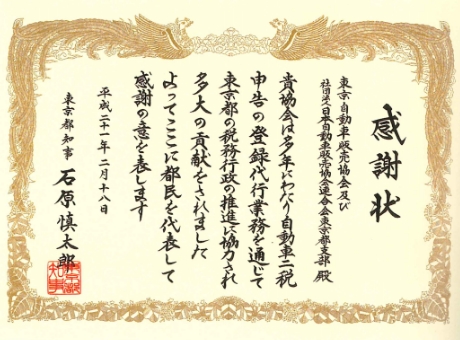 感謝状
東京自動車販売協会及び
社団法人日本自動車販売協会連合会東京都支部 殿
貴協会は多年にわたり自動車二税
申告の登録代行業務を通じて
東京都の税務行政の推進に協力され
多大の貢献をされました
よってここに都民を代表して
感謝の意を表します
平成二十一年二月十八日
東京都知事 石原慎太郎